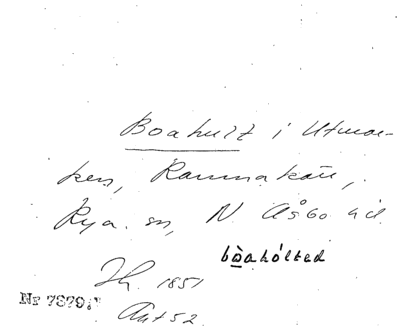 Boahult i Utmar-
ken, Rammakärr,
Rya sn, N. Åsbo hd.
bo̲ahólted
1851
Nr 7879:
Ant 52